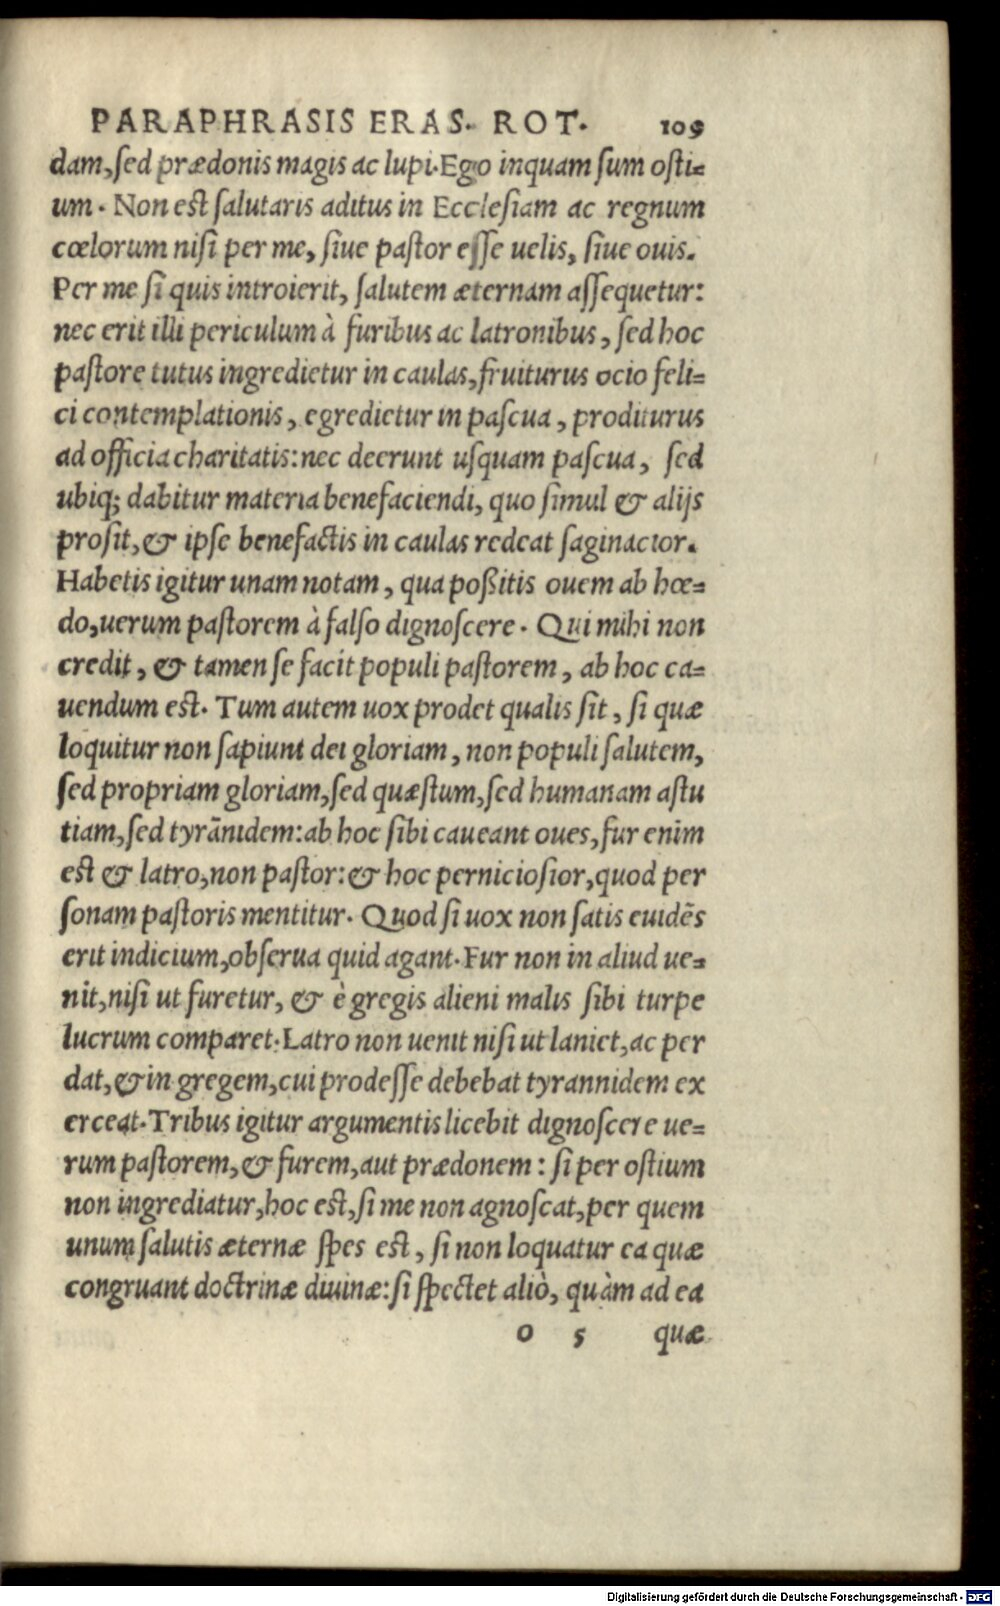 PARAPHRASIS ERAS. ROT. 109
dam, sed prædonis magis ac lupi. Ego inquam sum osti=
um. Non est salutaris aditus in Ecclesiam ac regnum
cœlorum nisi per me, siue pastor esse uelis, siue ouis.
Per me si quis introierit, salutem æternam assequetur:
nec erit illi periculum à furibus ac latronibus, sed hoc
pastore tutus ingredietur in caulas, fruiturus ocio feli=
ci contemplationis, egredietur in pascua, proditurus
ad officia charitatis: nec deerunt usquam pascua, sed
ubiq; dabitur materia benefaciendi, quo simul & alijs
prosit, & ipse benefactis in caulas redeat saginatior.
Habetis igitur unam notam, qua poßitis ouem ab hœ=
do, uerum pastorem à falso dignoscere. Qui mihi non
credit, & tamen se facit populi pastorem, ab hoc ca=
uendum est. Tum autem uox prodet qualis sit, si quæ
loquitur non sapiunt dei gloriam, non populi salutem,
sed propriam gloriam, sed quæstum, sed humanam astu
tiam, sed tyrãnidem: ab hoc sibi caueant oues, fur enim
est & latro, non pastor: & hoc perniciosior, quod per
sonam pastoris mentitur. Quod si uox non satis euidẽs
erit indicium, obserua quid agant. Fur non in aliud ue=
nit, nisi ut furetur, & è gregis alieni malis sibi turpe
lucrum comparet. Latro non uenit nisi ut laniet, ac per
dat, & in gregem, cui prodesse debebat tyrannidem ex
erceat. Tribus igitur argumentis licebit dignoscere ue=
rum pastorem, & furem, aut prædonem: si per ostium
non ingrediatur, hoc est, si me non agnoscat, per quem
unum salutis æternæ spes est, si non loquatur ea quæ
congruant doctrinæ diuinæ: si spectet aliò, quàm ad ea
o 5 quæ
Digitalisierung gefördert durch die Deutsche Forschungsgemeinschaft - DFG